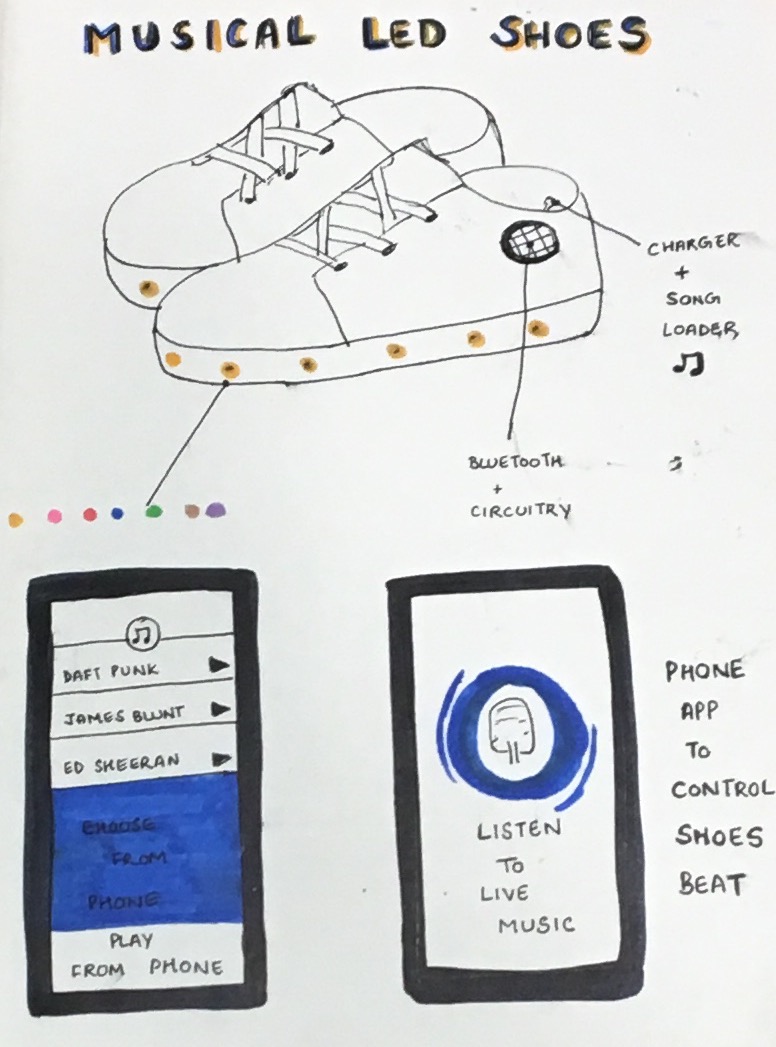 MUSICAL LED SHOES
CHARGER
+
SONG
LOADER
BLUETOOTH
+
CIRCUITRY
DAFT PUNK
JAMES BLUNT
ED SHEERAN
CHOOSE
FROM
PHONE
PLAY
FROM PHONE
LISTEN
TO
LIVE
MUSIC
PHONE
APP
TO
CONTROL
SHOES
BEAT